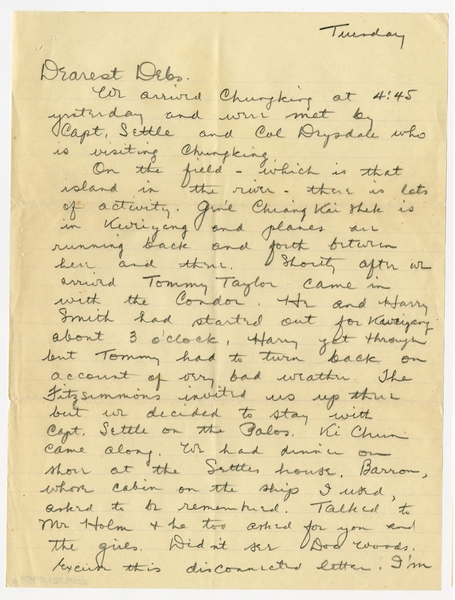 Tuesday
Dearest Debs.
We arrived Chungking at 4:45
yesterday and were met by
Capt. Settle and Col Drysdale who
is visiting Chungking.
On the field - which is that
island in the river - there is lots
of activity. Gen'l Chiang Kai Shek is
in Kweiyang and planes are
running back and forth between
here and there. Shortly after we
arrived Tommy Taylor came in
with the Condor. He and Harry
Smith had started out for Kweiyang
about 3 o'clock, Harry got through
but Tommy had to turn back on
account of very bad weather. The
Fitzsimmons invited us up there
but we decided to stay with
Capt. Settle on the Palos. Ki Chun
came along. We had dinner on
shore at the Settles house. Barron,
whose cabin on the ship I used,
asked to be remembered. Talked to
Mr Holm & he too asked for you and
the girls. Didn't see Doc Woods.
Excuse this disconnected letter. I'm